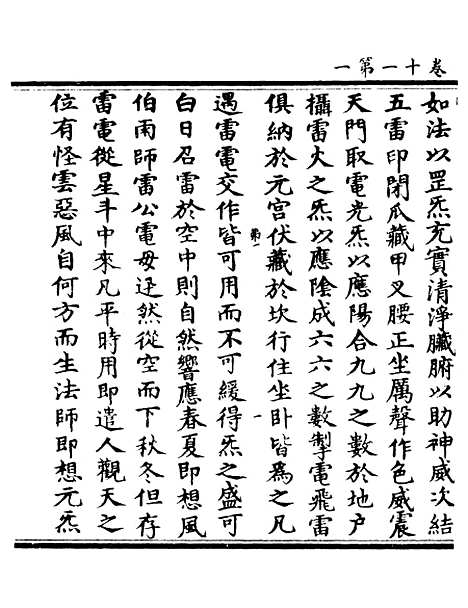 卷十一第一
如法以罡炁充實清淨臟腑以助神威次結
五雷印閉爪藏甲叉腰正坐厲聲作色威震
天門取電光炁以應陽合九九之數於地戶
攝雷火之炁以應陰成六六之數掣電飛雷
俱納於元宮伏藏於坎行住坐卧皆爲之凡
第二 一
遇雷電交作皆可用而不可緩得炁之盛可
白日召雷於空中則自然響應春夏即想風
伯雨師雷公電母迅然從空而下秋冬但存
雷電從星斗中來凡平時用即遣人觀天之
位有怪雲惡風自何方而生法師即想元炁